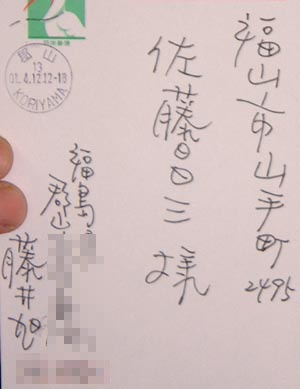 福山市山手町
2495
佐藤日三 様
福島
郡山
藤井旭
郡山
13
01.4.12 12-18
KORIYAMA